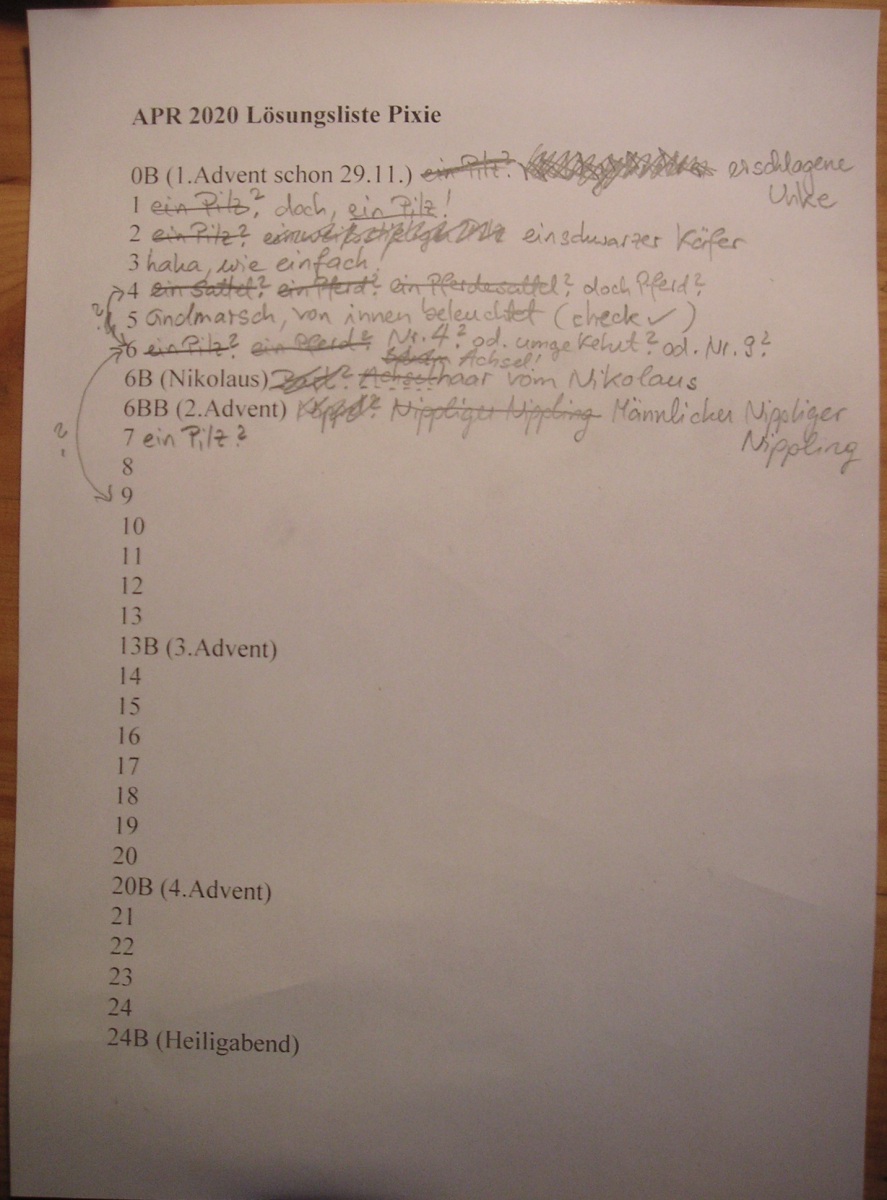 APR 2020 Lösungsliste Pixie
0B (1.Advent schon 29.11.) ein Pilz? erschlagene
Unke
1 ein Pilz? doch, ein Pilz!
2 ein Pilz? ein schwarzer Käfer
3 haha, wie einfach!
4 ein Sattel? ein Pferd? ein Pferdesattel? doch Pferd?
? 5 Andmarsch, von innen beleuchtet (check ✓)
6 ein Pilz? ein Pferd? Nr. 4? od. umgekehrt? od. Nr. 9?
Achsel!
6B (Nikolaus) Achselhaar vom Nikolaus
6BB (2.Advent) Nippliger Nippling Männlicher Nippliger
Nippling
? 7 ein Pilz?
8
9
10
11
12
13
13B (3.Advent)
14
15
16
17
18
19
20
20B (4.Advent)
21
22
23
24
24B (Heiligabend)